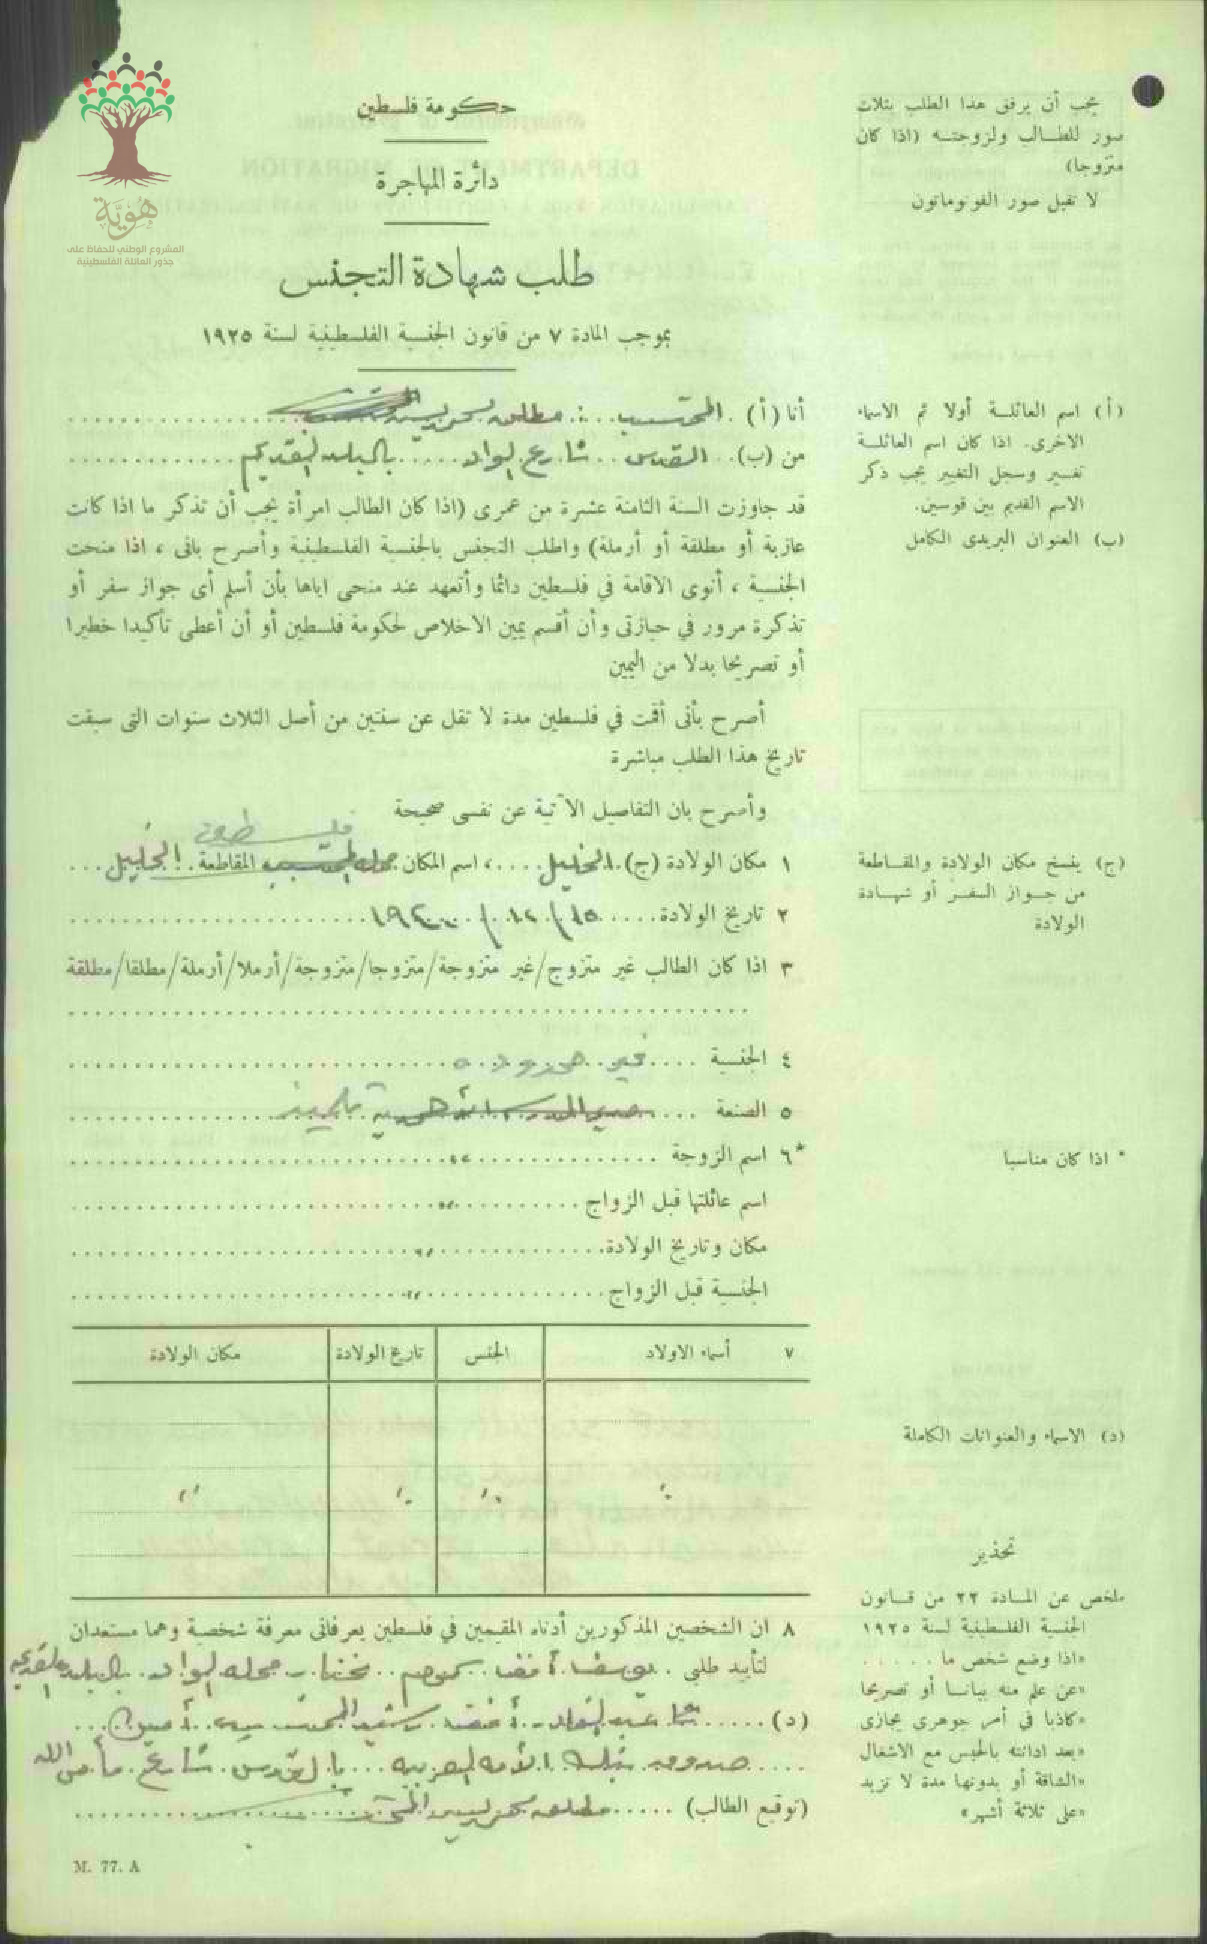 هُوِيَّة
المشروع الوطني للحفاظ على
جذور العائلة الفلسطينية
حكومة فلسطين
دائرة المهاجرة
طلب شهادة التجنس
بموجب المادة ٧ من قانون الجنسية الفلسطينية لسنة ١٩٢٥
يجب أن يرفق هذا الطلب بثلاث
صور للطالب ولزوجته (اذا كان
متزوجا)
لا تقبل صور الفوتوماتون
أنا (أ) المحتسب
من (ب) القدس شارع الواد بالبلده القديمه
قد جاوزت السنة الثامنة عشرة من عمرى (اذا كان الطالب امرأة يجب أن تذكر ما اذا كانت
عازبة أو مطلقة أو أرملة) واطلب التجنس بالجنسية الفلسطينية وأصرح بانى ، اذا منحت
الجنسية ، أنوى الاقامة في فلسطين دائما وأتعهد عند منحى اياها بأن أسلم أى جواز سفر أو
تذكرة مرور في حيازتى وأن أقسم يمين الاخلاص لحكومة فلسطين أو أن أعطى تأكيدا خطيرا
أو تصريحا بدلا من اليمين
أصرح بأنى أقمت في فلسطين مدة لا تقل عن سنتين من أصل الثلاث سنوات التى سبقت
تاريخ هذا الطلب مباشرة
وأصرح بان التفاصيل الآتية عن نفسى صحيحة
١ مكان الولادة (ج) الخليل ، اسم المكان المقاطعة الخليل
٢ تاريخ الولادة ١٥/ ١٢/
٣ اذا كان الطالب غير متزوج/غير متزوجة/متزوجا/متزوجة/أرملا/أرملة/مطلقا/مطلقة
٤ الجنسية غير
٥ الصنعة تلميذ
*٦ اسم الزوجة
اسم عائلتها قبل الزواج
مكان وتاريخ الولادة
الجنسية قبل الزواج
٧ أسماء الاولاد الجنس تاريخ الولادة مكان الولادة
٨ ان الشخصين المذكورين أدناه المقيمين في فلسطين يعرفانى معرفة شخصية وهما مستعدان
لتأييد طلبي يوسف محله الواد بالبلده القديمه
(د) المحتسب أمين
صندوق بنك الأمه العربيه بالقدس شارع مأمن الله
(توقيع الطالب)
(أ) اسم العائلة أولا ثم الاسماء
الاخرى. اذا كان اسم العائلة
تغيير وسجل التغيير يجب ذكر
الاسم القديم بين قوسين.
(ب) العنوان البريدى الكامل
(ج) ينسخ مكان الولادة والمقاطعة
من جواز السفر أو شهادة
الولادة
* اذا كان مناسبا
(د) الاسماء والعنوانات الكاملة
تحذير
ملخص عن المادة ٢٢ من قانون
الجنسية الفلسطينية لسنة ١٩٢٥
«اذا وضع شخص ما . . . . .
«عن علم منه بيانا أو تصريحا
«كاذبا في أمر جوهرى يجازى
«بعد ادانته بالحبس مع الاشغال
«الشاقة أو بدونها مدة لا تزيد
«على ثلاثة أشهر»
M. 77. A